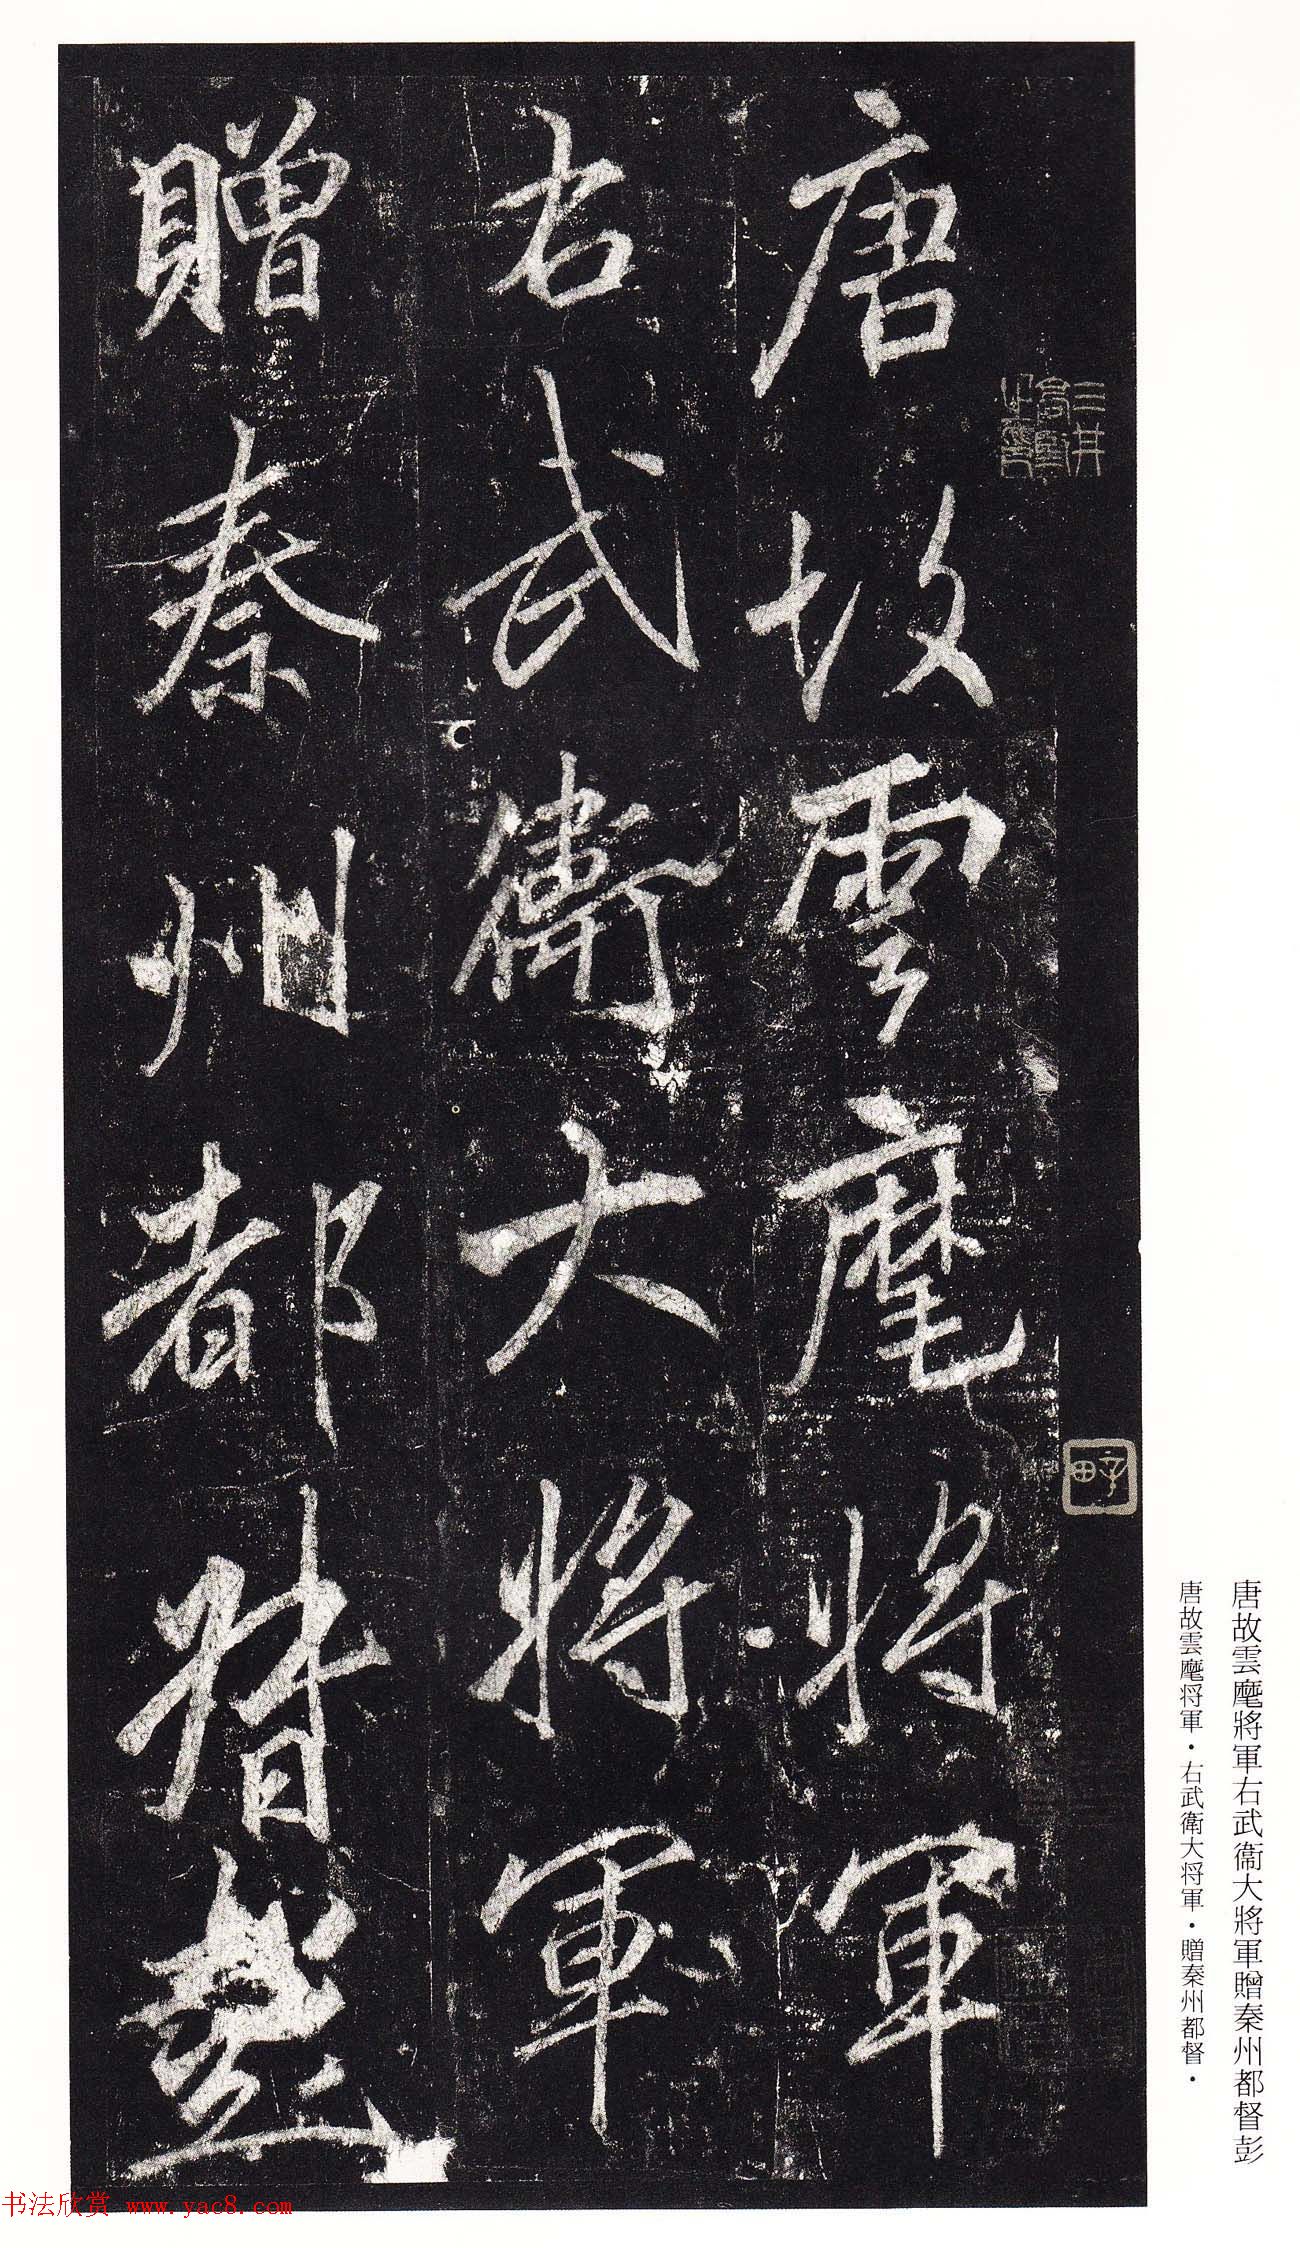 唐故雲麾將軍
右武衛大將軍
贈秦州都督彭
三井
町
唐故雲麾將軍右武衞大將軍贈秦州都督彭
唐故雲麾将軍・右武衛大将軍・贈秦州都督・
书法欣赏 www.yac8.com